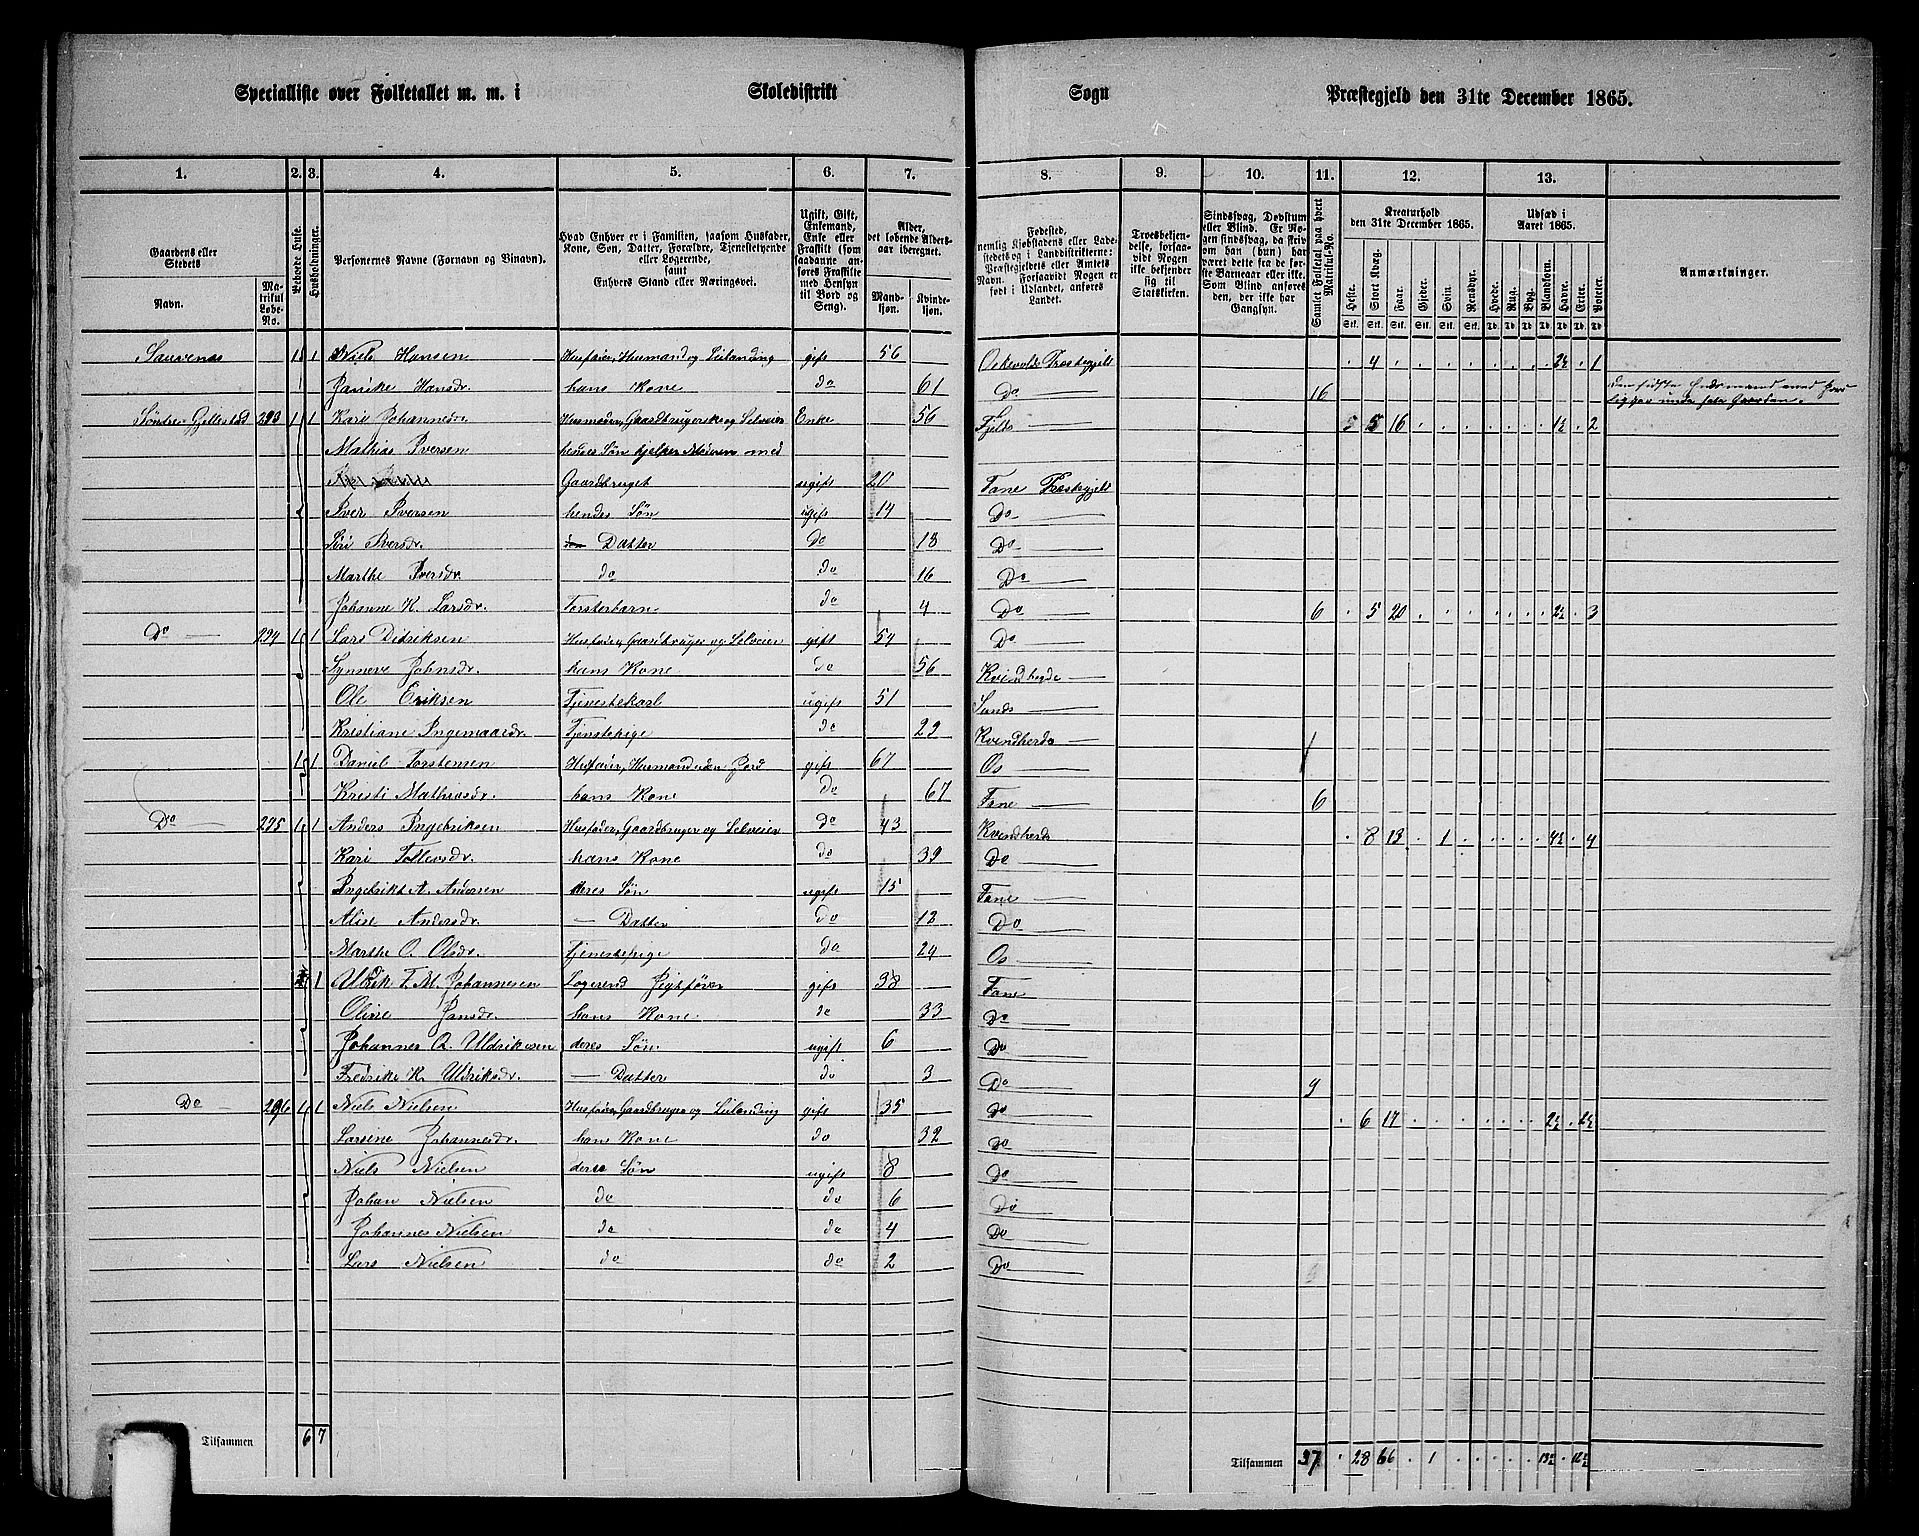 Specialliste over Folketallet m. m. i Skoledistrikt Sogn Præstegjeld den 31te December 1865.
1. 2. 3. 4. 5. 6. 7. 8. 9. 10. 11. 12. 13.
Gaardens eller Stedets
Navn.
Matrikul Løbe-No.
Beboede Huse.
Husholdninger.
Personernes Navne (Fornavn og Binavn).
Hvad Enhver er i Familien, saasom Husfader, Kone, Søn, Datter, Forældre, Tjenestetyende eller Logerende, samt Enhvers Stand eller Næringsvei.
Ugift, Gift, Enkemand, Enke eller Fraskilt (som saadanne anføres Fraskilte med Hensyn til Bord og Seng).
Alder, det løbende Aldersaar iberegnet.
Mandkjøn.
Kvindekjøn.
Fødested, nemlig Kjøbstadens eller Ladestedets og i Landdistrikterne: Præstegjeldets eller Amtets Navn. Forsaavidt Nogen er født i Udlandet, anføres Landet.
Troesbekjendelse, forsaavidt Nogen ikke bekjender sig til Statskirken.
Sindssvag, Døvstum eller Blind. Er Nogen sindssvag, da skriv om han (hun) har været dette fra de første Barneaar eller ikke. Som Blind anføres den, der ikke har Gangsyn.
Samlet Folketal paa hvert Matrikul-No.
Kreaturhold den 31te December 1865.
Heste. Stort Kvæg. Faar. Gjeder. Svin. Rensdyr.
Udsæd i Aaret 1865.
Hvede. Rug. Byg. Blandkorn. Havre. Erter. Poteter.
Anmærkninger.
1 1 Niels Hansen Husfader, Husmand og Leilænding gift 56 4 2½ 1
Janike Hansdr. hans Kone do 61 Do 16
Søndre Gjellestad 293 1 1 Kari Johannesdr. Husmoder, Gaardbrugerske og Selveier Enke 56 Fjelds 5 5 16 1½ 2
Mathias Iversen hendes Søn hjelper Moderen med
Gaardbruget ugift 20 Fane Præstegjeld
Iver Iversen hendes Søn ugift 14 Do
Siri Iversdr. Datter Do 18 Do
Marthe Iversdr. do do 16 Do
Johanne K. Larsdr. Fosterbarn do 4 Do 6 5 20 2½ 3
Do 294 1 1 Lars Didriksen Husfader, Gaardbruger og Selveier gift 54 Do
Synneve Johnsdr. hans Kone do 56
Ole Eriksen Tjenestekarl ugift 51 Sunds
Kristiane Ingemaarsdr. Tjenstepige do 29 Kvindherds
1 1 Daniel Torstensen Husfader, Husmand uden Jord gift 67 Os
Kristi Mathiasdr. hans Kone do 67 Fane 6
Do 295 1 1 Anders Ingebriksen Husfader, Gaardbruger og Selveier do 43 Kvindherds 8 13 1 4½ 4
Kari Tollevsdr. hans Kone do 39 Do
Ingebrikt A. Andersen deres Søn ugift 15 Fane
Alise Andersdr. — Datter do 12 Do
Marthe O. Olsdr. Tjenestepige do 24 Os
1 Uldrik F. M. Johannesen Logerend gift 38 Fane
Oline Jansdr. hans Kone do 33 Do
Johannes A. Uldriksen deres Søn ugift 6 Do
Fredrike K. Uldriksdr. — Datter do 3 Do 9
Do 296 1 1 Niels Nielsen Husfader, Gaardbruger og Leilænding gift 35 Do 6 17 2½ 2½
Larsine Johannesdr. hans Kone do 32 Do
Niels Nielsen deres Søn ugift 8 Do
Johan Nielsen do do 6 Do
Johannes Nielsen do do 4 Do
Lars Nielsen do do 2 Do
Tilsammen 6 7 Tilsammen 37 28 66 1 13½ 12½